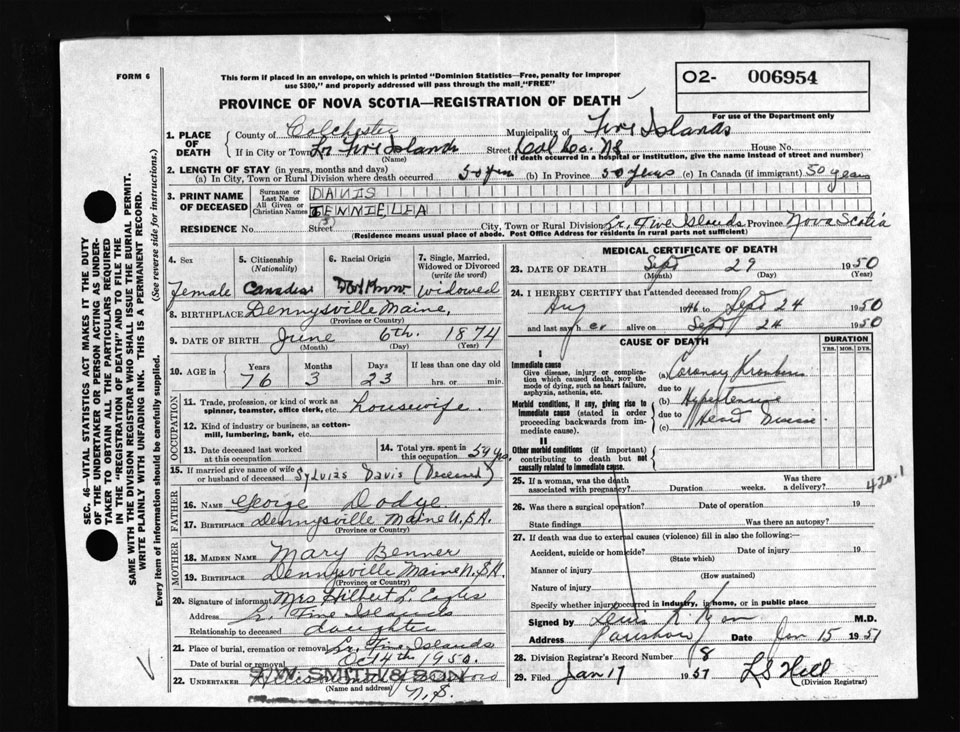 FORM 6
This form if placed in an envelope, on which is printed "Dominion Statistics—Free, penalty for improper
use $300," and properly addressed will pass through the mail "FREE"
O2- 006954
For use of the Department only
PROVINCE OF NOVA SCOTIA—REGISTRATION OF DEATH
1. PLACE OF DEATH
County of Colchester Municipality of Five Islands
If in City or Town Lr Five Islands Street Col Co. NS House No.
(Name) (If death occurred in a hospital or institution, give the name instead of street and number)
2. LENGTH OF STAY (in years, months and days)
(a) In City, Town or Rural Division where death occurred 50 yrs (b) In Province 50 years (c) In Canada (if immigrant) 50 years
3. PRINT NAME OF DECEASED
Surname or Last Name DAVIS
All Given or Christian Names JENNIE LEA
RESIDENCE No. Street City, Town or Rural Division Lr. Five Islands Province Nova Scotia
(Residence means usual place of abode. Post Office Address for residents in rural parts not sufficient)
4. Sex
5. Citizenship (Nationality)
6. Racial Origin
7. Single, Married, Widowed or Divorced (write the word)
Female Canadian Don't Know widowed
8. BIRTHPLACE Dennysville Maine,
(Province or Country)
9. DATE OF BIRTH June 6th. 1874
(Month) (Day) (Year)
10. AGE in Years Months Days If less than one day old
76 3 23 hrs. or min.
OCCUPATION
11. Trade, profession, or kind of work as spinner, teamster, office clerk, etc. housewife.
12. Kind of industry or business, as cotton-mill, lumbering, bank, etc.
13. Date deceased last worked at this occupation
14. Total yrs. spent in this occupation 54 yrs.
15. If married give name of wife or husband of deceased Sylvizs Davis (Deceased)
FATHER
16. NAME George Dodge
17. BIRTHPLACE Dennysville Maine U.S.A.
MOTHER
18. MAIDEN NAME Mary Benner
19. BIRTHPLACE Dennysville Maine U.S.A.
(Province or Country)
20. Signature of informant Mrs Hilbert L. Eagles
Address Lr. Five Islands
Relationship to deceased daughter
21. Place of burial, cremation or removal Lr. Five Islands
Date of burial or removal Oct 4th 1950.
22. UNDERTAKER
S.W. SMITH & SON
(Name and address)
N.S.
MEDICAL CERTIFICATE OF DEATH
23. DATE OF DEATH Sept 29 1950
(Month) (Day) (Year)
24. I HEREBY CERTIFY that I attended deceased from:
Aug 1946 to Sept 24 1950
and last saw her alive on Sept 24 1950
CAUSE OF DEATH
DURATION
YRS. MOS. DYS.
I
Immediate cause
Give disease, injury or complication which caused death, not the mode of dying, such as heart failure, asphyxia, asthenia, etc.
(a) Coronary Thrombosis
due to
Morbid conditions, if any, giving rise to immediate cause (stated in order proceeding backwards from immediate cause).
(b) Hypertensive
due to
(c) Heart Disease
II
Other morbid conditions (if important) contributing to death but not causally related to immediate cause.
25. If a woman, was the death associated with pregnancy? Duration weeks. Was there a delivery?
420.1
26. Was there a surgical operation? Date of operation 19
State findings Was there an autopsy?
27. If death was due to external causes (violence) fill in also the following:—
Accident, suicide or homicide? Date of injury 19
(State which)
Manner of injury
(How sustained)
Nature of injury
Specify whether injury occurred in industry, in home, or in public place
Signed by M.D.
Address Parrsboro Date Jan 15 1951
28. Division Registrar's Record Number 18
29. Filed Jan 17 1951 LS Hill
(Division Registrar)
SEC. 46—VITAL STATISTICS ACT MAKES IT THE DUTY
OF THE UNDERTAKER OR PERSON ACTING AS UNDER-
TAKER TO OBTAIN ALL THE PARTICULARS REQUIRED
IN THE "REGISTRATION OF DEATH" AND TO FILE THE
SAME WITH THE DIVISION REGISTRAR WHO SHALL ISSUE THE BURIAL PERMIT.
WRITE PLAINLY WITH UNFADING INK. THIS IS A PERMANENT RECORD.
Every item of information should be carefully supplied. (See reverse side for instructions.)